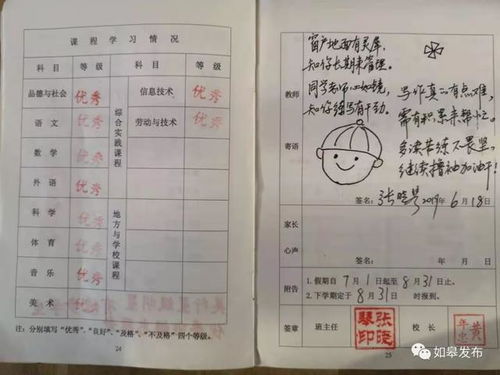 课程学习情况
科目 等级 科目 等级
品德与社会 优秀 综合实践课程 信息技术 优秀
语文 优秀 劳动与技术 优秀
数学 优秀
外语 优秀
科学 优秀 地方与学校课程
体育 优秀
音乐 优秀
美术 优秀
注：分别填写“优秀”、“良好”、“及格”、“不及格”四个等级。
24
教师寄语
窗户地面有灵犀，
知你长期来管理。
同学老师心如镜，
知你频写有干劲。
写作真的有点难，
需有积累来帮忙。
多读苦练不畏坚，
继续撸袖加油干！
签名：张晓琴 2019年6月18日
家长心声
签名： 年 月 日
附告
1. 假期自7月1日起至8月31日止。
2. 下学期定于8月31日 时报到。
签章 班主任 张晓琴印 校长 黄
25
如皋发布